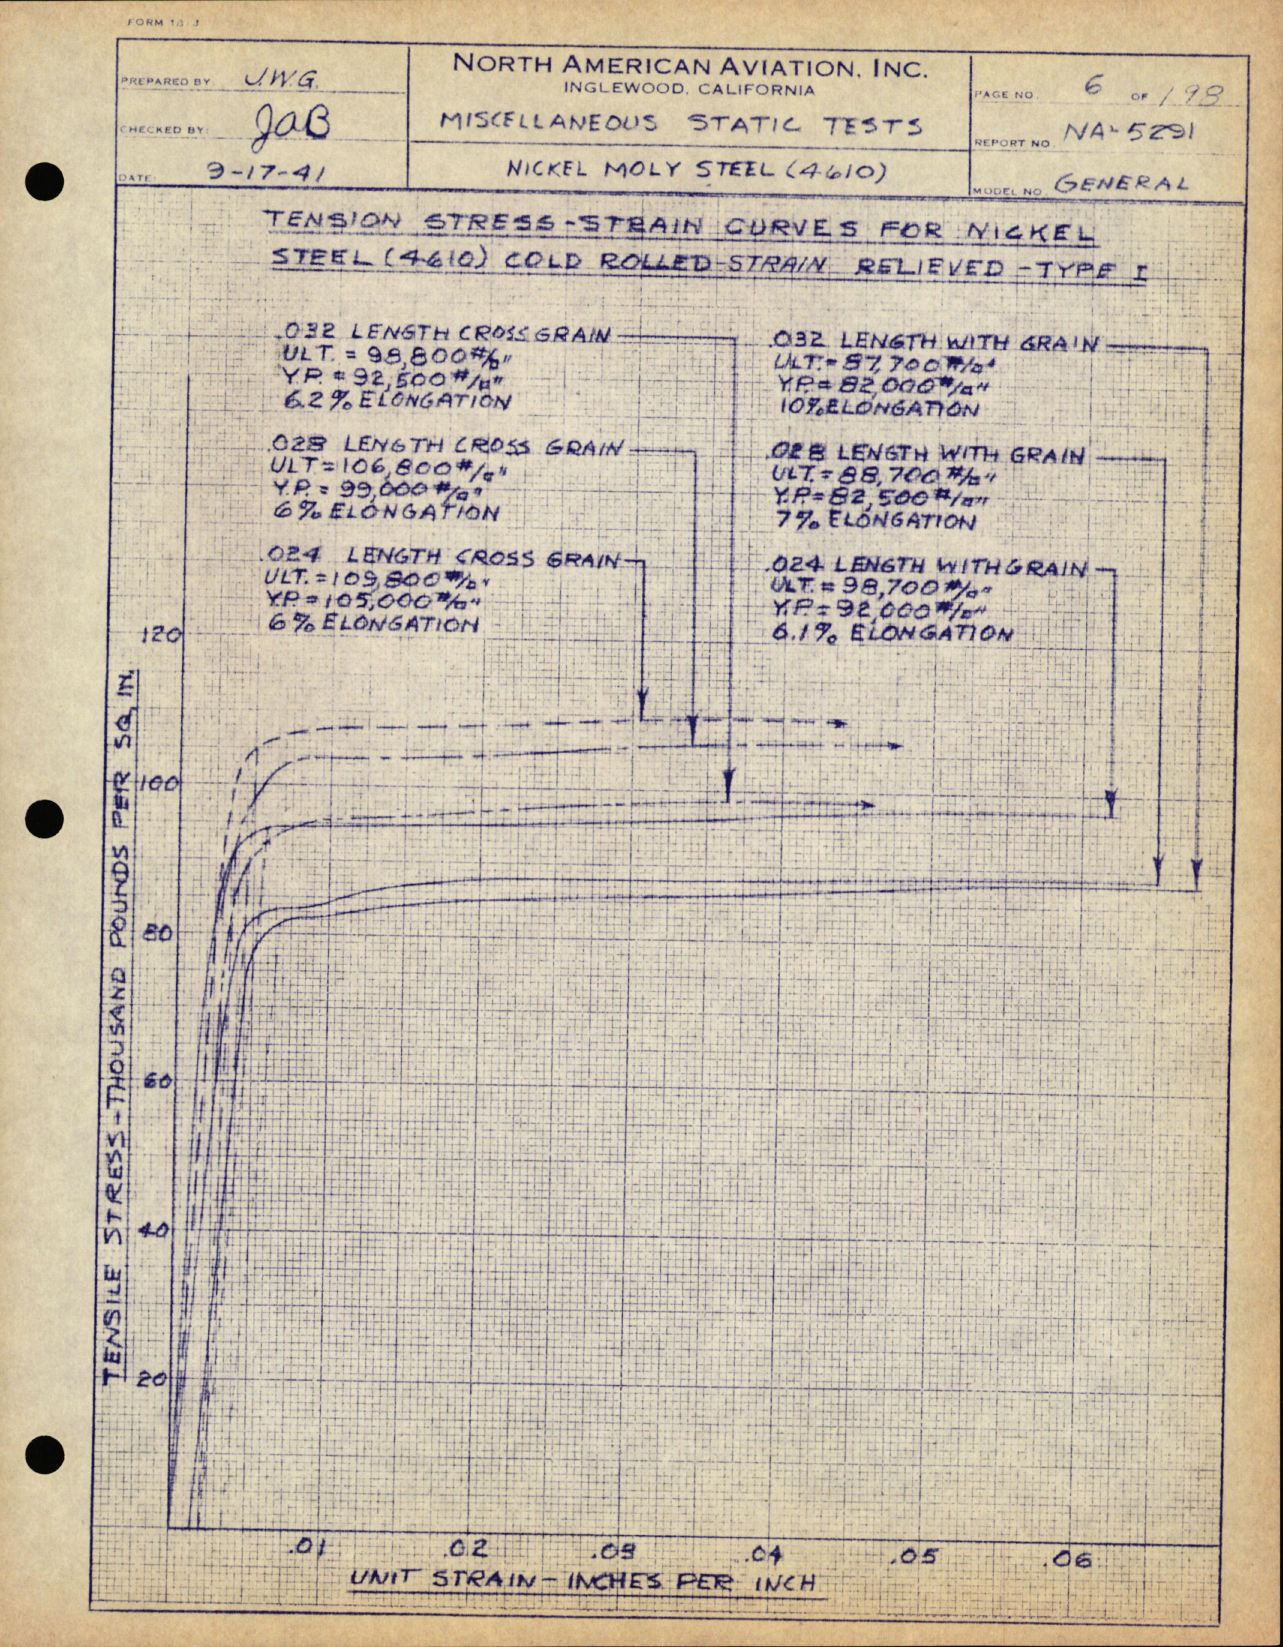 PREPARED BY: J.W.G.
CHECKED BY: JAB
DATE: 9-17-41
NORTH AMERICAN AVIATION, INC.
INGLEWOOD, CALIFORNIA
MISCELLANEOUS STATIC TESTS
NICKEL MOLY STEEL (4610)
PAGE NO. 6 OF 198
REPORT NO. NA-5291
MODEL NO. GENERAL
TENSION STRESS-STRAIN CURVES FOR NICKEL
STEEL (4610) COLD ROLLED-STRAIN RELIEVED-TYPE I
.032 LENGTH CROSS GRAIN
ULT. = 98,800 #/□"
Y.P. = 92,500 #/□"
6.2% ELONGATION
.028 LENGTH CROSS GRAIN
ULT = 106,800 #/□"
Y.P. = 99,000 #/□"
6% ELONGATION
.024 LENGTH CROSS GRAIN
ULT. = 109,800 #/□"
Y.P. = 105,000 #/□"
6% ELONGATION
.032 LENGTH WITH GRAIN
ULT. = 87,700 #/□"
Y.P. = 82,000 #/□"
10% ELONGATION
.028 LENGTH WITH GRAIN
ULT. = 88,700 #/□"
Y.P. = 82,500 #/□"
7% ELONGATION
.024 LENGTH WITH GRAIN
ULT. = 98,700 #/□"
Y.P. = 92,000 #/□"
6.1% ELONGATION
TENSILE STRESS-THOUSAND POUNDS PER SQ. IN.
120
100
80
60
40
20
.01 .02 .03 .04 .05 .06
UNIT STRAIN-INCHES PER INCH